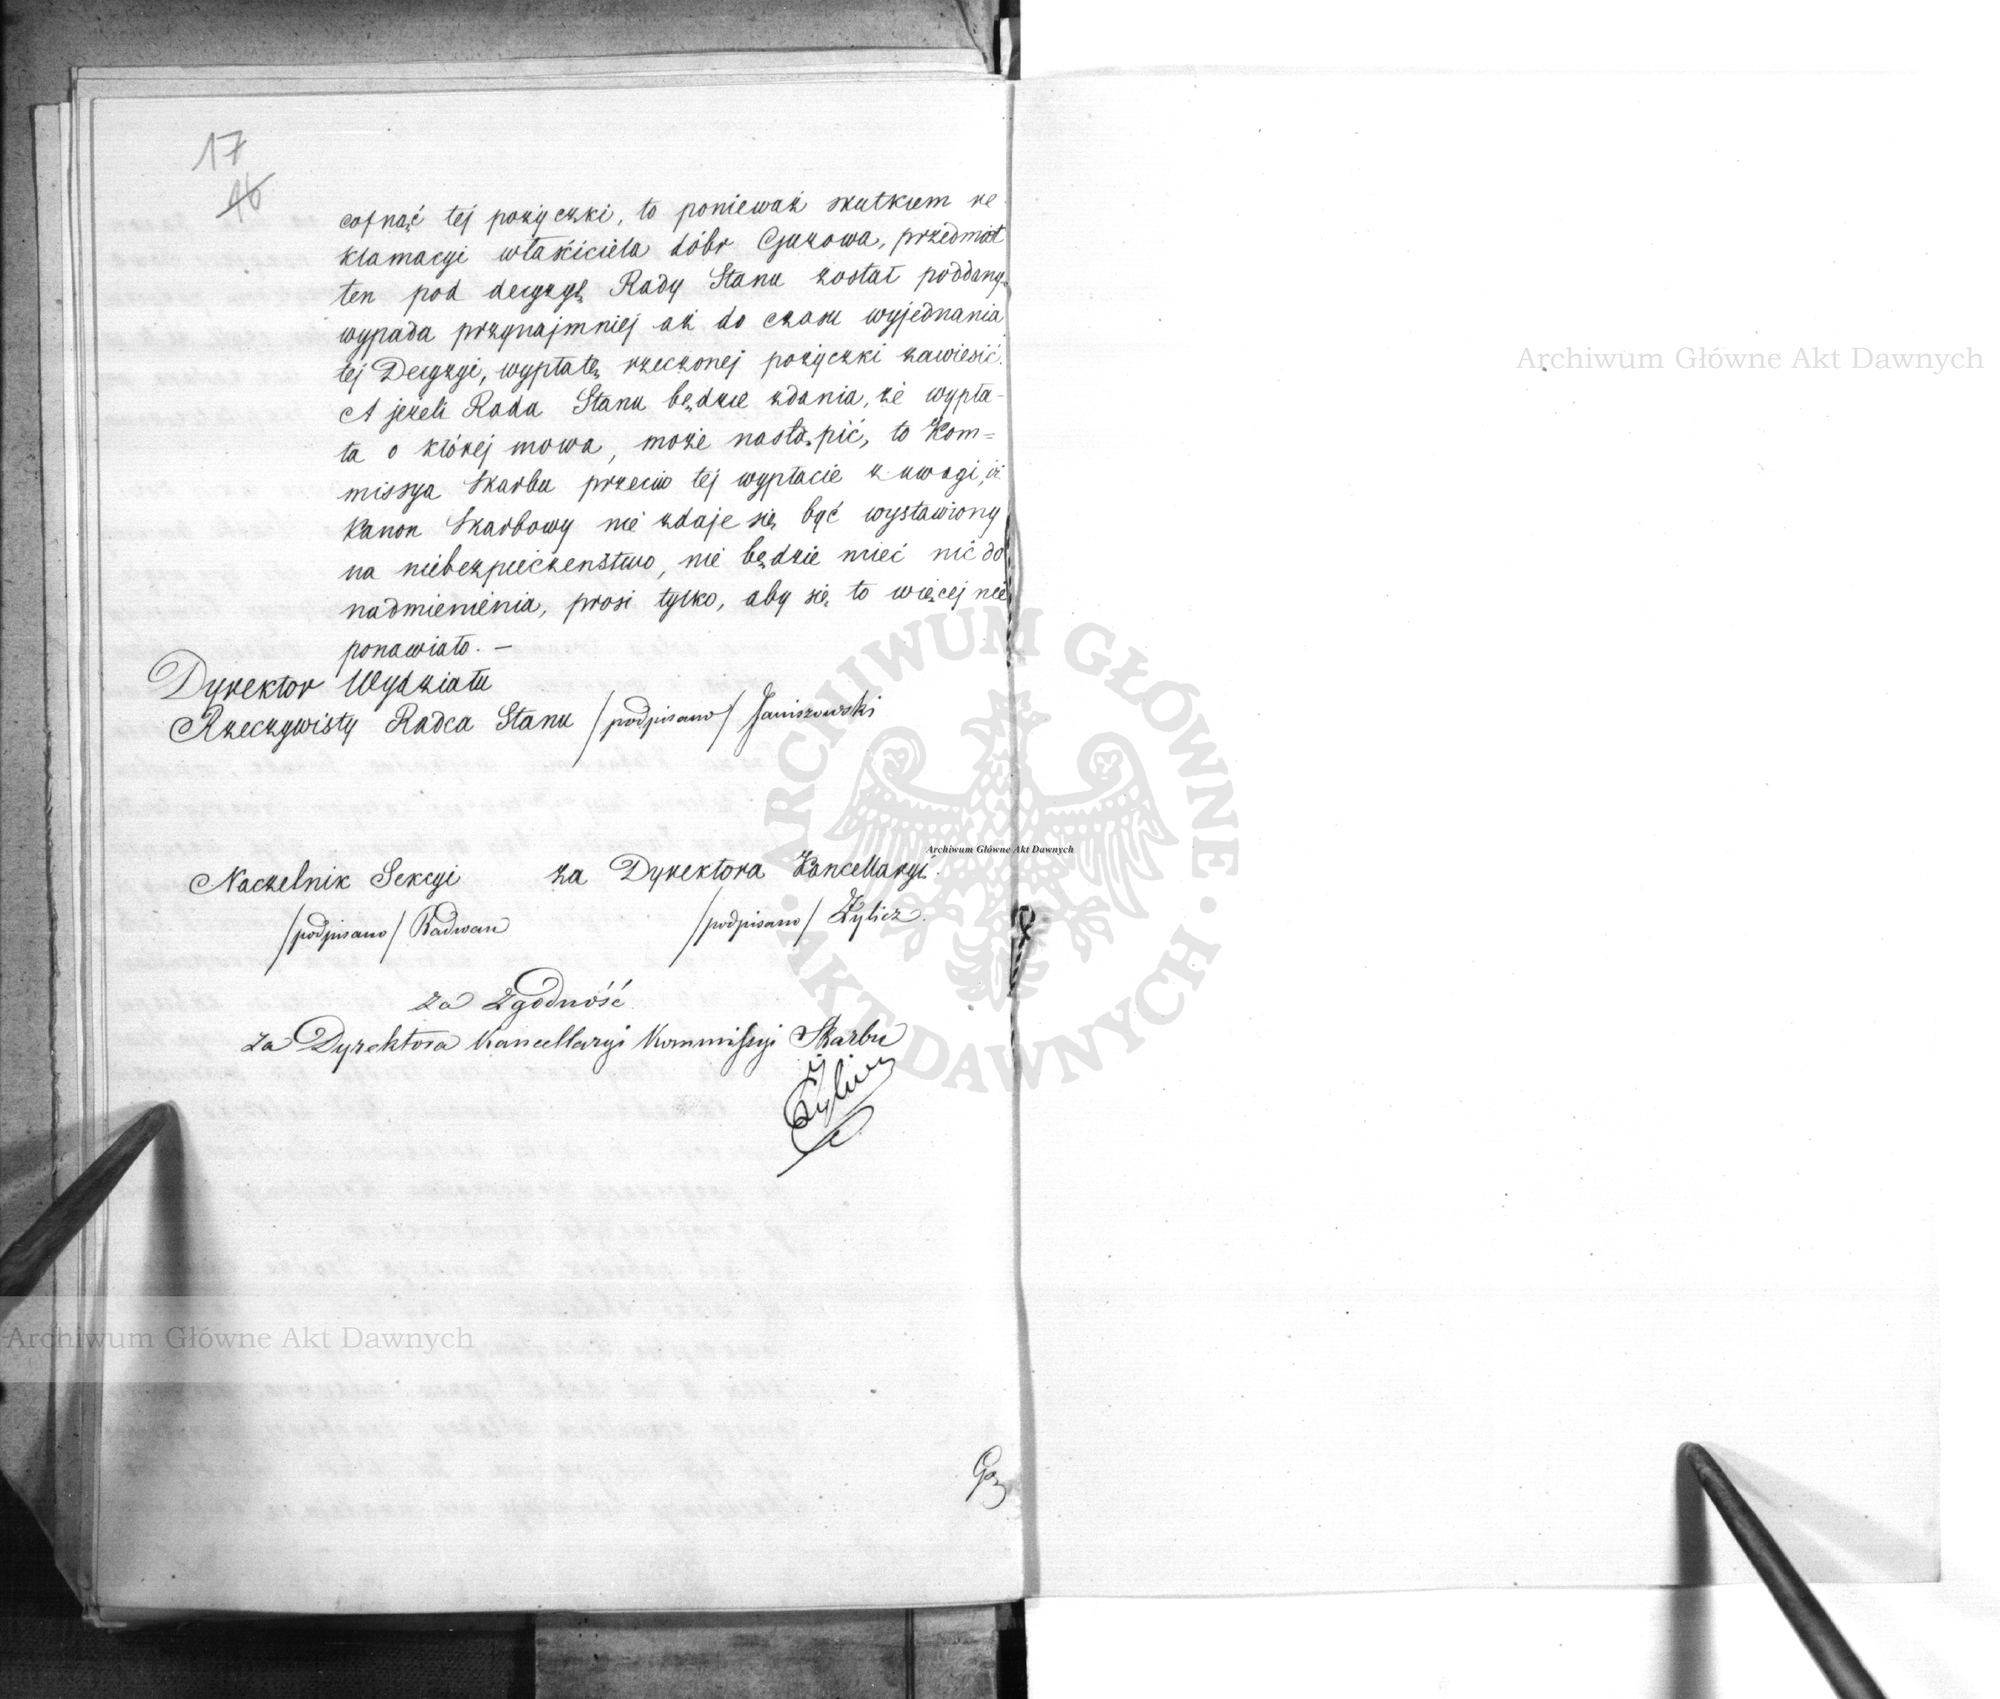 17
46
cofnąć tej pożyczki, to ponieważ skutkiem re
klamacyi właściciela dóbr Guzowa, przedmiot
ten pod decyzyę Rady Stanu został poddany,
wypada przynajmniej aż do czasu wyjednania
tej Decyzyi, wypłatę rzeczonej pożyczki zawiesić.
A jeżeli Rada Stanu będzie zdania, że wypła-
ta o której mowa, może nastąpić, to Kom=
missya Skarbu przeciw tej wypłacie z uwagi, iż
Kanon Skarbowy nie zdaje się być wystawiony
na niebezpieczeństwo, nie będzie mieć nic do
nadmienienia, prosi tylko, aby się to więcej nie
ponawiało. —
Dyrektor Wydziału
Rzeczywisty Radca Stanu /podpisano/ Janiszowski
Naczelnik Sekcyi za Dyrektora Kancellaryi.
/podpisano/ Radwan /podpisano/ Żylicz.
za zgodność
za Dyrektora Kancellaryi Kommissyi Skarbu
Żylicz
Archiwum Główne Akt Dawnych
ARCHIWUM GŁÓWNE · AKT DAWNYCH ·
Archiwum Główne Akt Dawnych
Archiwum Główne Akt Dawnych